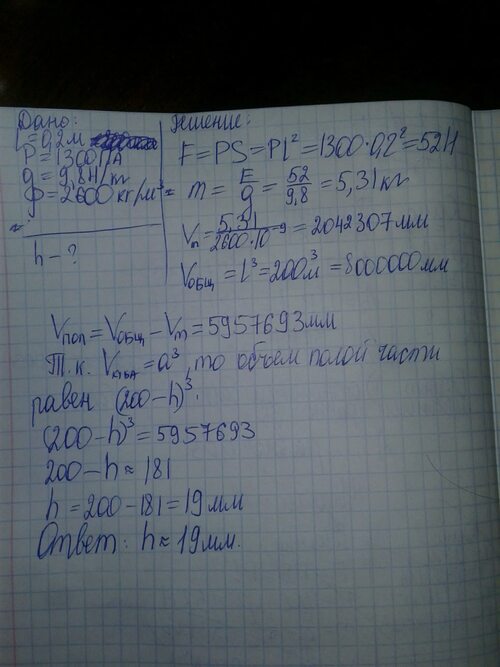 Дано:
l=0,2м
P=1300ПА
g=9,8Н/кг
ρ=2600кг/м³
h-?
Решение:
F=PS=Pl²=1300·0,2²=52Н
m=F/g=52/9,8=5,31кг
Vп=5,31/2600·10⁻⁹=2042307мм
Vобщ=l³=200м³=8000000мм
Vпол=Vобщ-Vm=5957693мм
Т.к. Vкуба=a³, то объем полой части
равен (200-h)³.
(200-h)³=5957693
200-h≈181
h=200-181=19мм
Ответ: h≈19мм.